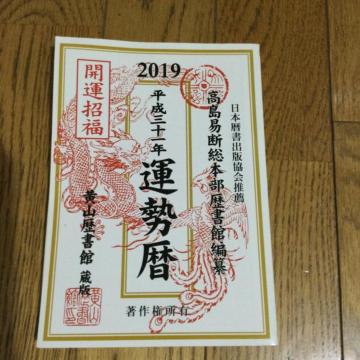 2019
日本暦書出版協会推薦
高島易断総本部歴書館編纂
平成三十一年
運勢暦
開運招福
黄山歴書館 蔵版
著作権所有